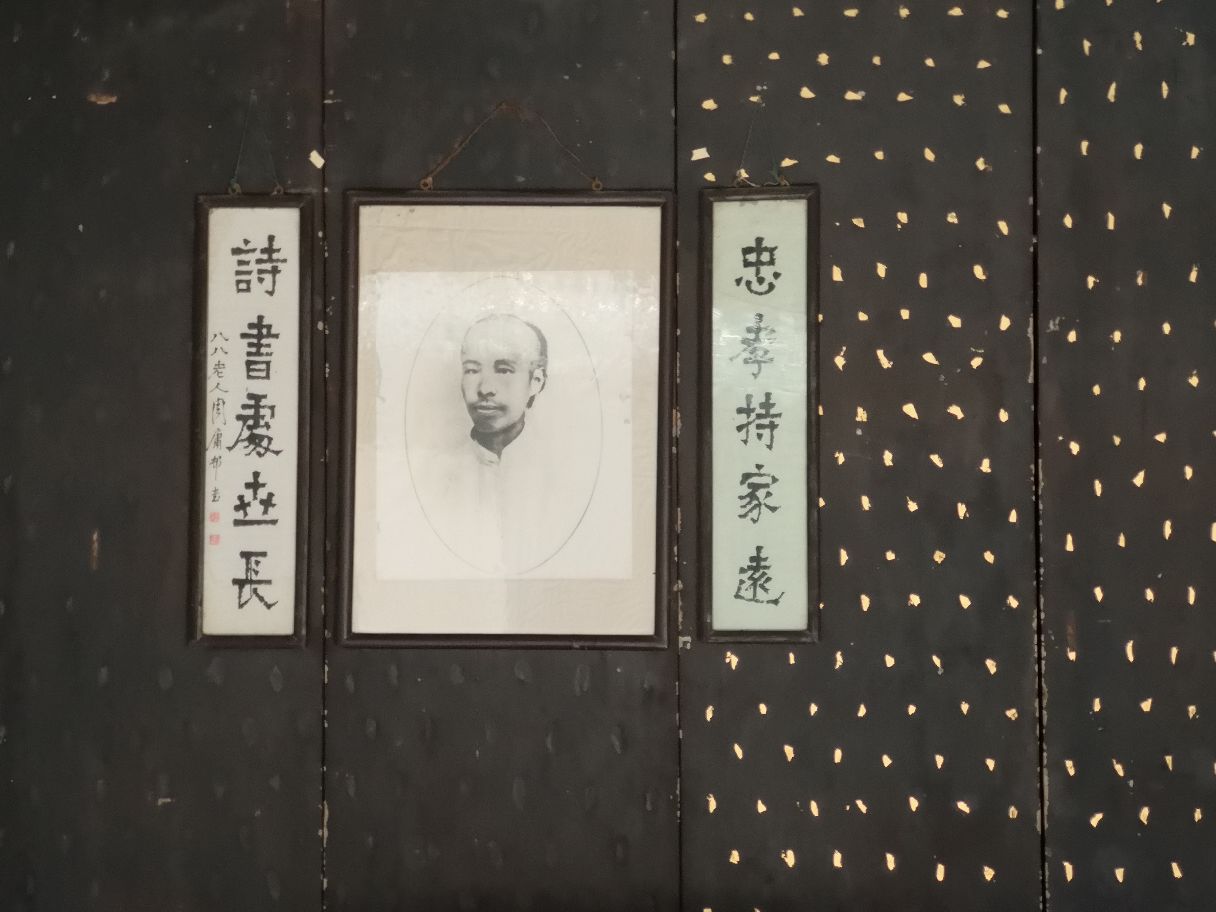 忠孝持家遠
詩書處世長
八八老人周庸邨書